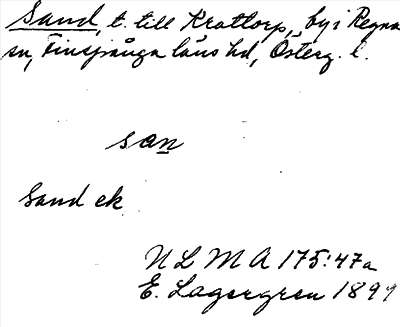 Sand, t. till Krattorp, by i Regna
sn, Finspånga läns hd, Österg. l.
san
Sand ek
N L M A 175:47a
E. Lagergren 1899